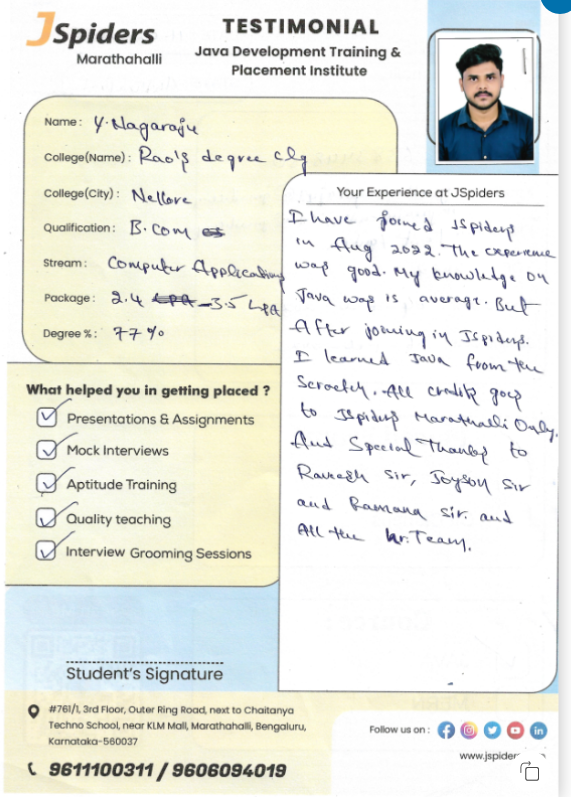 JSpiders
Marathahalli
TESTIMONIAL
Java Development Training &
Placement Institute
Name: Y. Nagaraju
College(Name): Rao's degree clg
College(City): Nellore
Qualification: B.Com
Stream: Computer Applications
Package: 2.4 LPA - 3.5 LPA
Degree %: 77%
What helped you in getting placed ?
Presentations & Assignments
Mock Interviews
Aptitude Training
Quality teaching
Interview Grooming Sessions
Your Experience at JSpiders
I have joined JSpiders
in Aug 2022. The experience
was good. My knowledge on
Java was is average. But
After joining in JSpiders.
I learned Java from the
Scratch. All credits goes
to JSpiders Marathalli Only.
And Special Thanks to
Ravesh Sir, Joyson Sir
and Ramana sir. and
All the hr. Team.
Student's Signature
#761/1, 3rd Floor, Outer Ring Road, next to Chaitanya
Techno School, near KLM Mall, Marathahalli, Bengaluru,
Karnataka-560037
9611100311 / 9606094019
Follow us on :
www.jspider